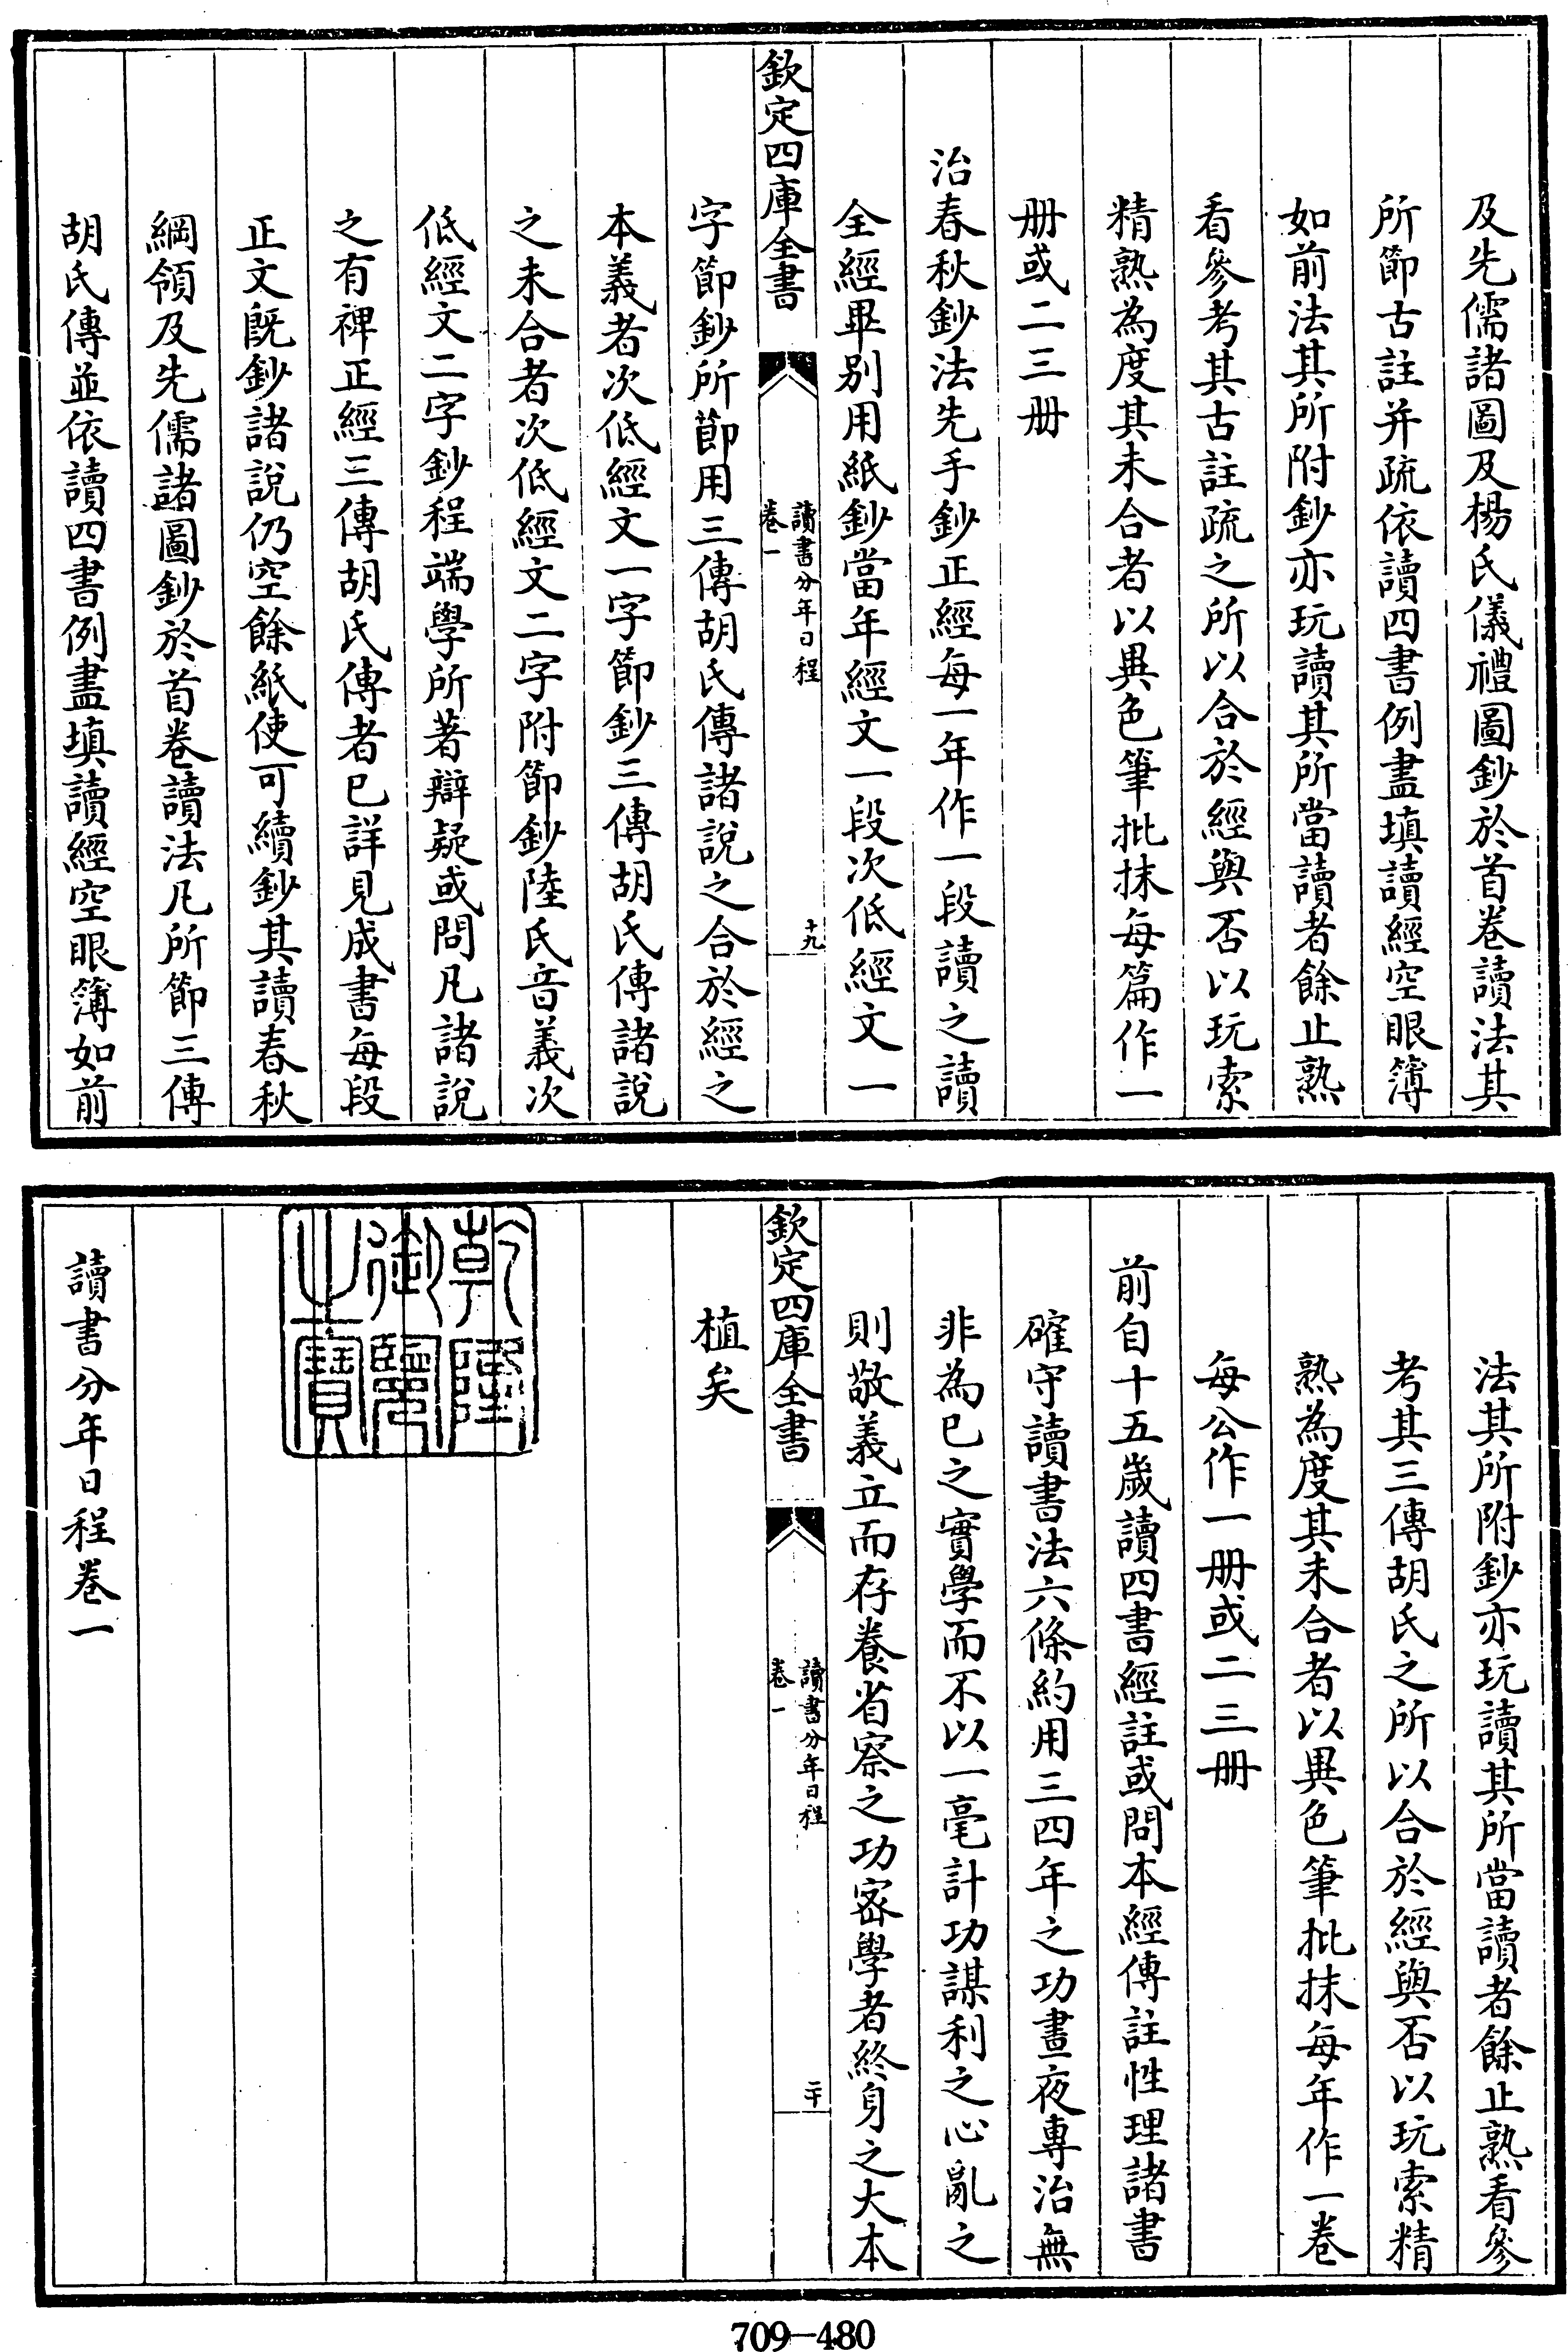 及先儒諸圖及楊氏儀禮圖鈔於首卷讀法其
所節古註并疏依讀四書例盡填讀經空眼簿
如前法其所附鈔亦玩讀其所當讀者餘止熟
看參考其古註疏之所以合於經與否以玩索
精熟為度其未合者以異色筆批抹每篇作一
册或二三册
治春秋鈔法先手鈔正經每一年作一段讀之讀
全經畢別用紙鈔當年經文一段次低經文一
欽定四庫全書
讀書分年日程
卷一
十九
字節鈔所節用三傳胡氏傳諸說之合於經之
本義者次低經文一字節鈔三傳胡氏傳諸說
之未合者次低經文二字附節鈔陸氏音義次
低經文二字鈔程端學所著辯疑或問凡諸說
之有裨正經三傳胡氏傳者已詳見成書每段
正文既鈔諸說仍空餘紙使可續鈔其讀春秋
綱領及先儒諸圖鈔於首卷讀法凡所節三傳
胡氏傳並依讀四書例盡填讀經空眼簿如前
法其所附鈔亦玩讀其所當讀者餘止熟看參
考其三傳胡氏之所以合於經與否以玩索精
熟為度其未合者以異色筆批抹每年作一卷
每公作一册或二三册
前自十五歲讀四書經註或問本經傳註性理諸書
確守讀書法六條約用三四年之功晝夜專治無
非為已之實學而不以一毫計功謀利之心亂之
則敬義立而存養省察之功密學者終身之大本
欽定四庫全書
讀書分年日程
卷一
二十
植矣
乾隆
御覽
之寶
讀書分年日程卷一
709-480